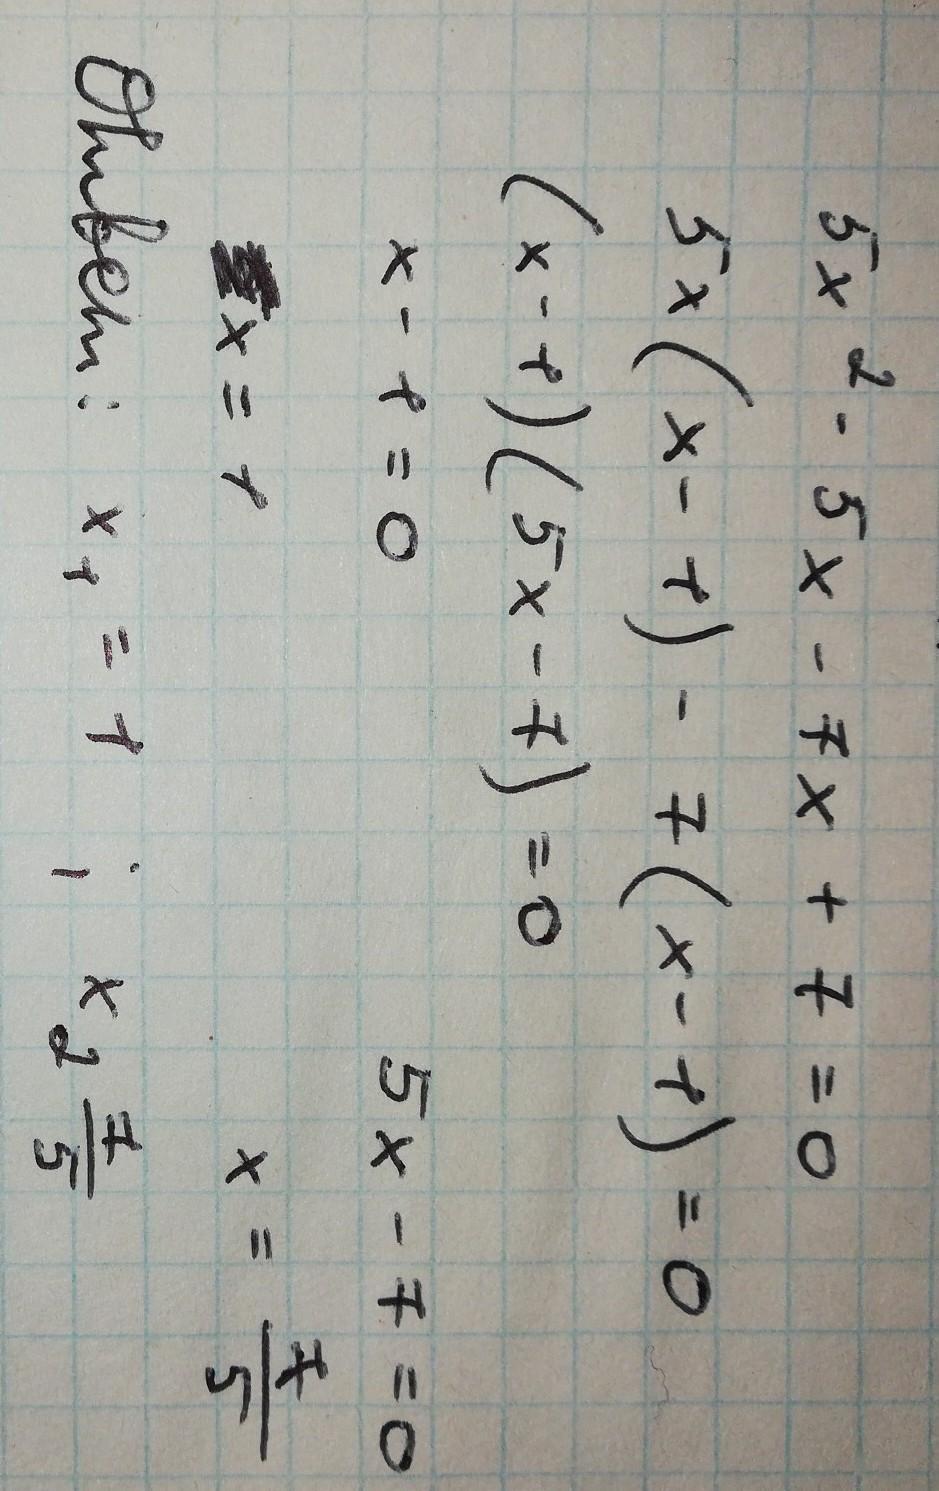 5x² - 5x - 7x + 7 = 0
5x(x - 1) - 7(x - 1) = 0
(x - 1)(5x - 7) = 0
x - 1 = 0 5x - 7 = 0
x = 1 x = 7/5
Ответ: x₁ = 1 ; x₂ 7/5